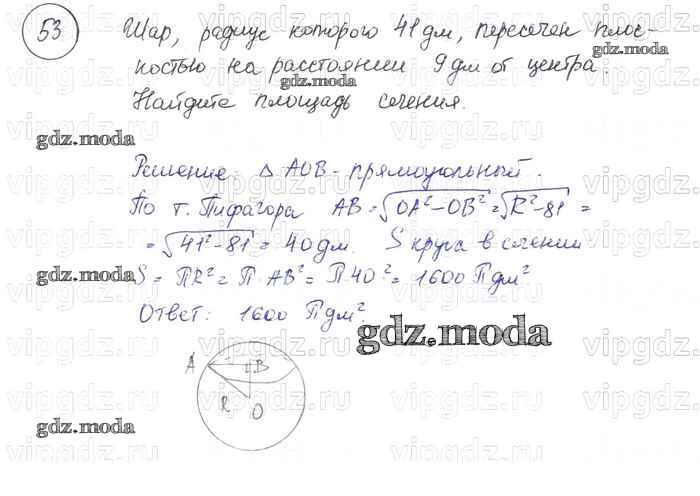 53 Шар, радиус которого 41 дм, пересечен плос-
костью на расстоянии 9 дм от центра.
Найдите площадь сечения.
Решение. △ AOB - прямоугольный.
По т. Пифагора AB = √OA² - OB² = √R² - 81 =
= √41² - 81 = 40 дм. S круга в сечении
S = ПR² = П · AB² = П 40² = 1600 П дм²
Ответ: 1600 П дм².
A B
R O
gdz.moda
gdz.moda
gdz.moda
gdz.moda
gdz.moda
vipgdz.ru